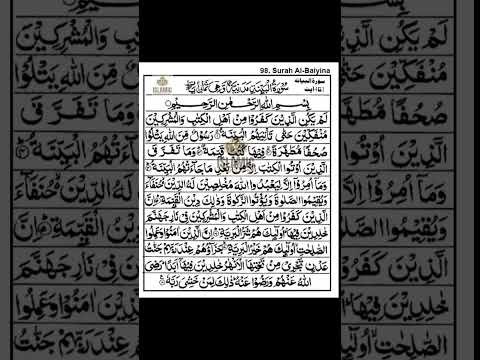 98. Surah Al-Baiyina
سورة البينة
ISLAMIC
سُوْرَةُ الْبَيِّنَةِ مَدَنِيَّةٌ وَّهِيَ ثَمَانِيْ
بِسْمِ اللّٰهِ الرَّحْمٰنِ الرَّحِيْمِ
لَمْ يَكُنِ الَّذِيْنَ كَفَرُوْا مِنْ اَهْلِ الْكِتٰبِ وَالْمُشْرِكِيْنَ
مُنْفَكِّيْنَ حَتّٰى تَاْتِيَهُمُ الْبَيِّنَةُ رَسُوْلٌ مِّنَ اللّٰهِ يَتْلُوْا
صُحُفًا مُّطَهَّرَةً فِيْهَا كُتُبٌ قَيِّمَةٌ وَمَا تَفَرَّقَ
الَّذِيْنَ اُوْتُوا الْكِتٰبَ اِلَّا مِنْۢ بَعْدِ مَا جَآءَتْهُمُ الْبَيِّنَةُ
وَمَآ اُمِرُوْٓا اِلَّا لِيَعْبُدُوا اللّٰهَ مُخْلِصِيْنَ لَهُ الدِّيْنَ حُنَفَآءَ
وَيُقِيْمُوا الصَّلٰوةَ وَيُؤْتُوا الزَّكٰوةَ وَذٰلِكَ دِيْنُ الْقَيِّمَةِ اِنَّ
الَّذِيْنَ كَفَرُوْا مِنْ اَهْلِ الْكِتٰبِ وَالْمُشْرِكِيْنَ فِيْ نَارِ جَهَنَّمَ
خٰلِدِيْنَ فِيْهَا اُولٰٓئِكَ هُمْ شَرُّ الْبَرِيَّةِ اِنَّ الَّذِيْنَ اٰمَنُوْا وَعَمِلُوا
الصّٰلِحٰتِ اُولٰٓئِكَ هُمْ خَيْرُ الْبَرِيَّةِ جَزَآؤُهُمْ عِنْدَ رَبِّهِمْ جَنّٰتُ
عَدْنٍ تَجْرِيْ مِنْ تَحْتِهَا الْاَنْهٰرُ خٰلِدِيْنَ فِيْهَآ اَبَدًا رَضِيَ
اللّٰهُ عَنْهُمْ وَرَضُوْا عَنْهُ ذٰلِكَ لِمَنْ خَشِيَ رَبَّهٗ